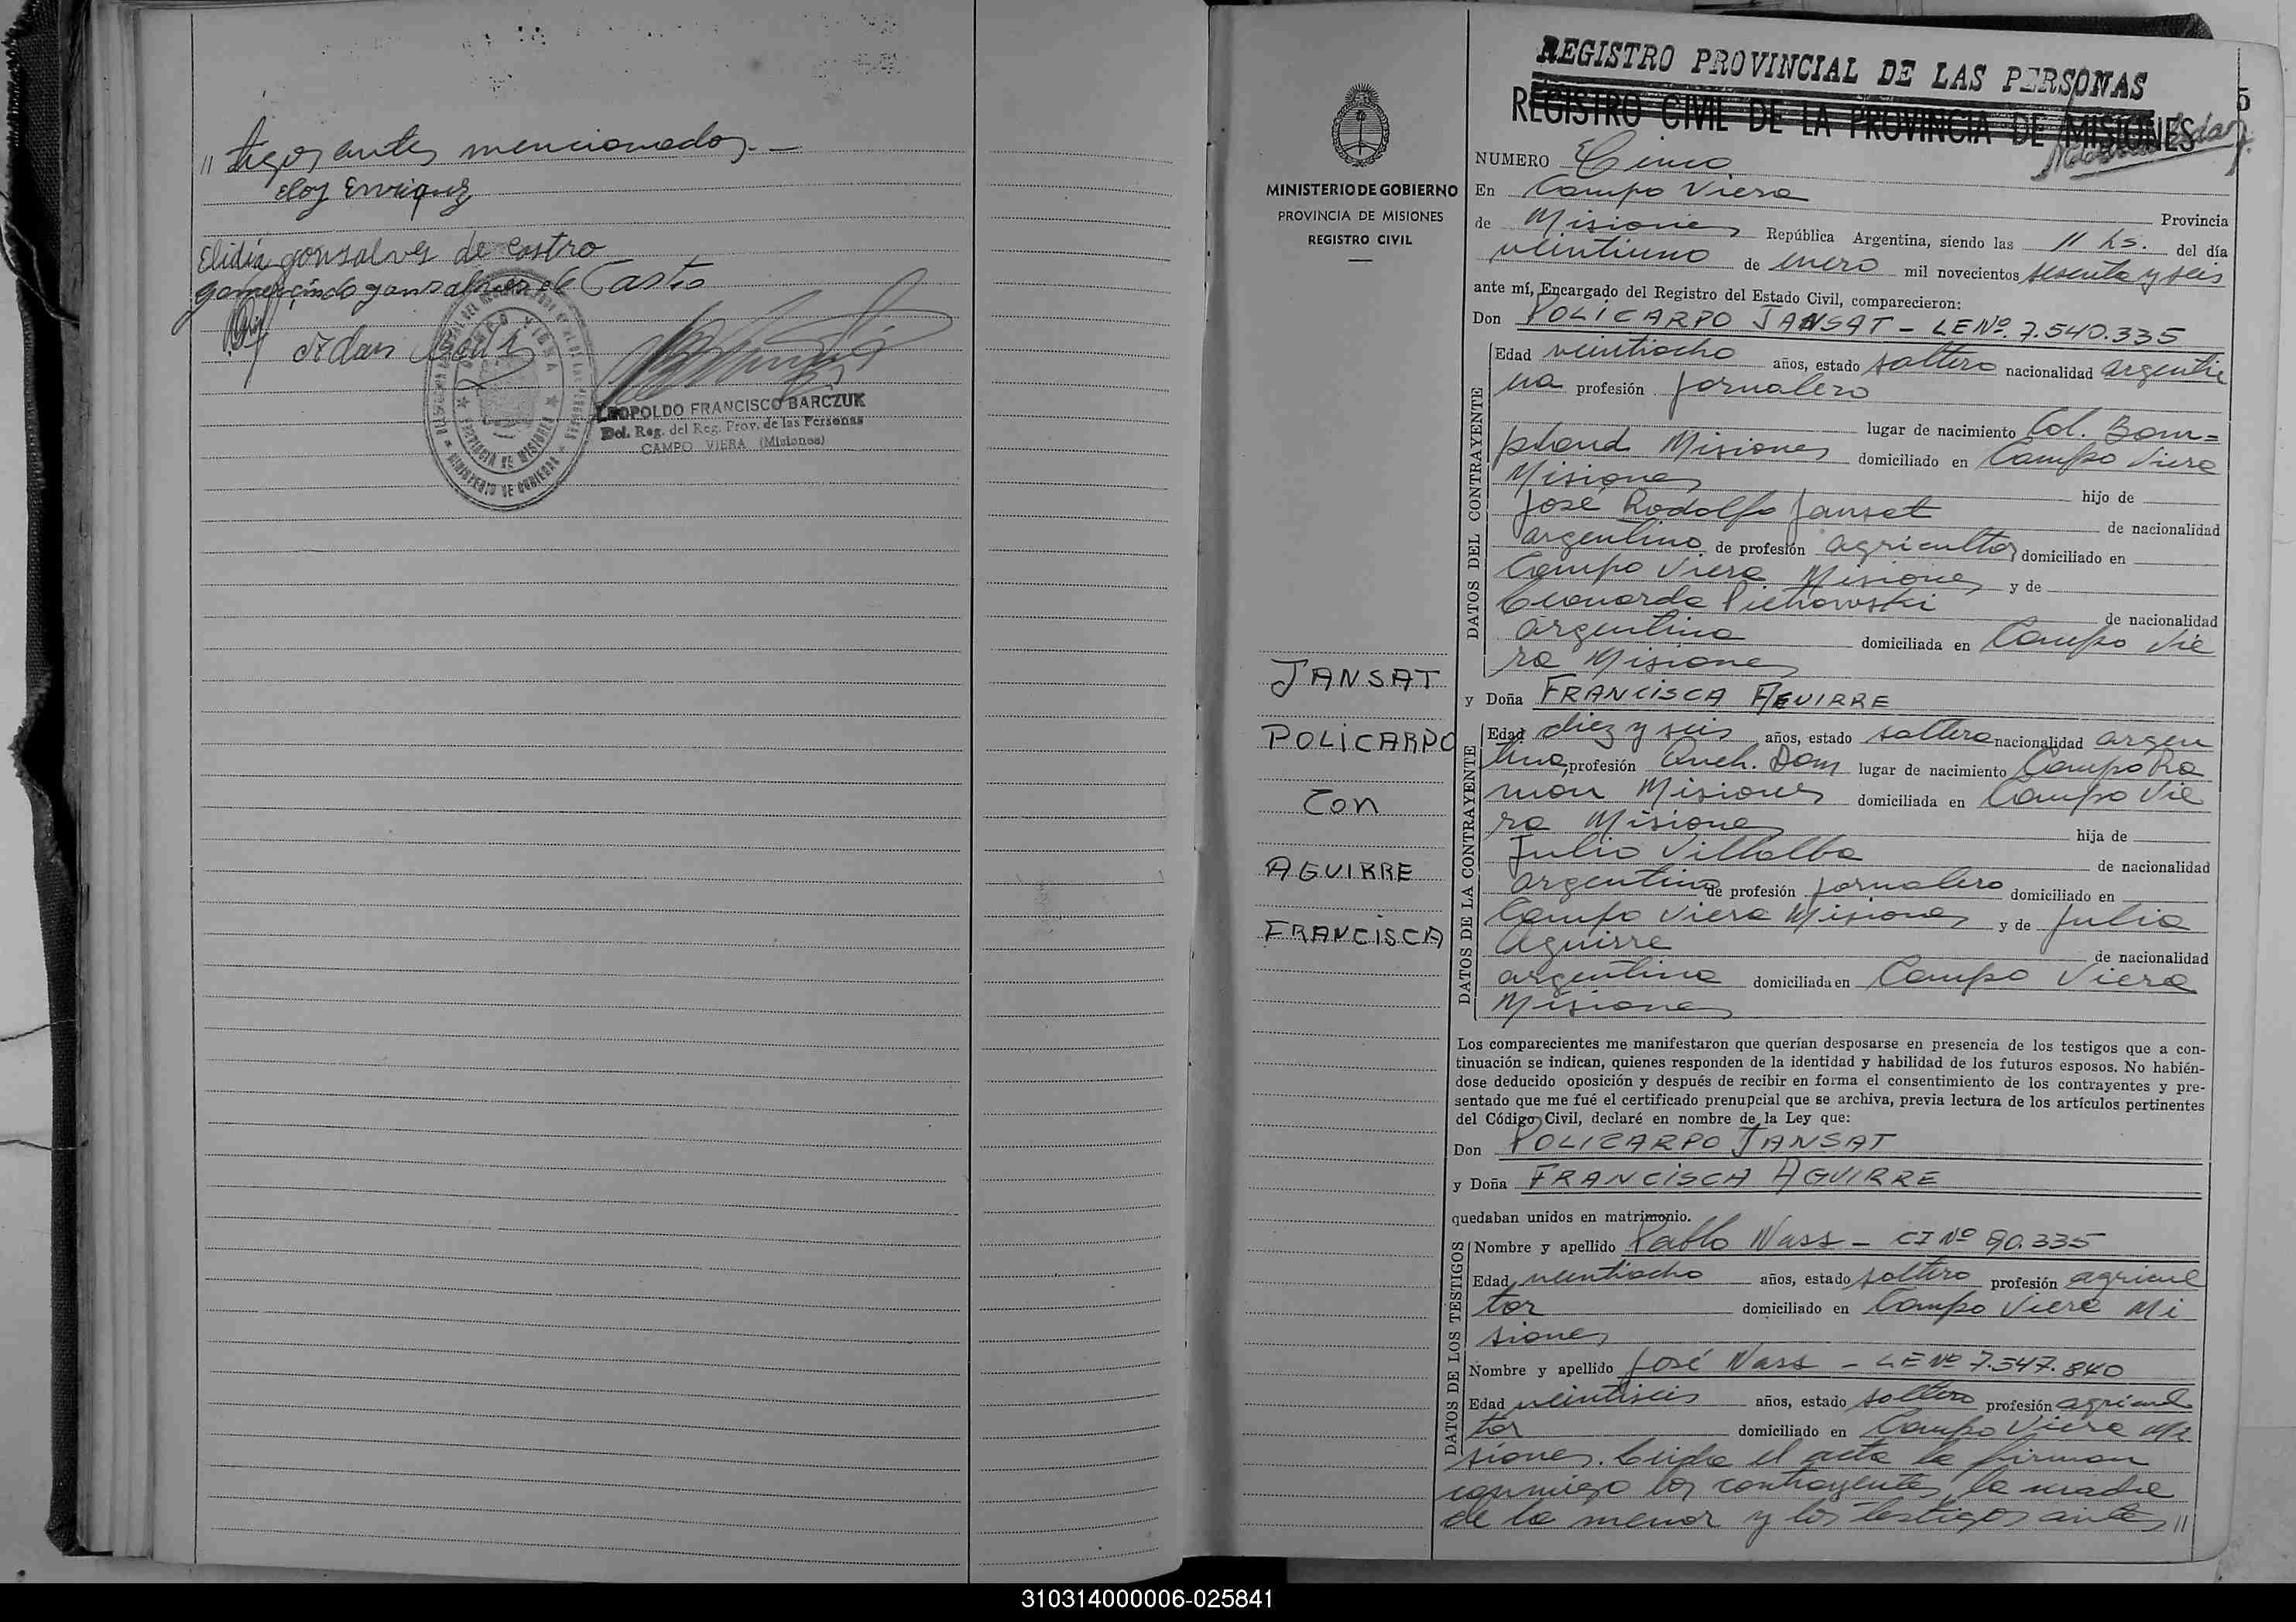 // tigos antes mencionados.—
Eloy Enriquez
Elidia gonsalves de castro
gomercindo gonsalves de Castro
LEOPOLDO FRANCISCO BARCZUK
Del. Reg. del Reg. Prov. de las Personas
CAMPO VIERA (Misiones)
PROVINCIA DE MISIONES
MINISTERIO DE GOBIERNO
MINISTERIO DE GOBIERNO
PROVINCIA DE MISIONES
REGISTRO CIVIL
JANSAT
POLICARPO
CON
AGUIRRE
FRANCISCA
REGISTRO PROVINCIAL DE LAS PERSONAS
REGISTRO CIVIL DE LA PROVINCIA DE MISIONES
5
NUMERO Cinco
En Campo Viera
de Misiones Provincia
República Argentina, siendo las 11 hs. del día
veintiuno de enero mil novecientos sesenta y seis
ante mí, Encargado del Registro del Estado Civil, comparecieron:
Don POLICARPO JANSAT – LE Nº 7.540.335
DATOS DEL CONTRAYENTE
Edad veintiocho años, estado soltero nacionalidad argenti
na profesión jornalero
lugar de nacimiento Col. Bom=
pland Misiones domiciliado en Campo Viera
Misiones hijo de
José Rodolfo Jansat de nacionalidad
argentino de profesión agricultor domiciliado en
Campo Viera Misiones y de
Leonarda Pietrowski de nacionalidad
argentina domiciliada en Campo Vie
ra Misiones
y Doña FRANCISCA AGUIRRE
DATOS DE LA CONTRAYENTE
Edad diez y seis años, estado soltera nacionalidad argen
tina profesión Queh. Dom lugar de nacimiento Campo Ra
mon Misiones domiciliada en Campo Vie
ra Misiones hija de
Julio Villalba de nacionalidad
argentino de profesión jornalero domiciliado en
Campo Viera Misiones y de Julia
Aguirre de nacionalidad
argentina domiciliada en Campo Viera
Misiones
Los comparecientes me manifestaron que querían desposarse en presencia de los testigos que a con-
tinuación se indican, quienes responden de la identidad y habilidad de los futuros esposos. No habién-
dose deducido oposición y después de recibir en forma el consentimiento de los contrayentes y pre-
sentado que me fué el certificado prenupcial que se archiva, previa lectura de los artículos pertinentes
del Código Civil, declaré en nombre de la Ley que:
Don POLICARPO JANSAT
y Doña FRANCISCA AGUIRRE
quedaban unidos en matrimonio.
DATOS DE LOS TESTIGOS
Nombre y apellido Pablo Nass – CI Nº 90.335
Edad veintiocho años, estado soltero profesión agricul
tor domiciliado en Campo Viera Mi
siones
Nombre y apellido José Nass – LE Nº 7.547.840
Edad veintiseis años, estado soltero profesión agricul
tor domiciliado en Campo Viera Mi
siones. Leida el acta la firman
conmigo los contrayentes, la madre
de la menor y los testigos antes //
310314000006-025841